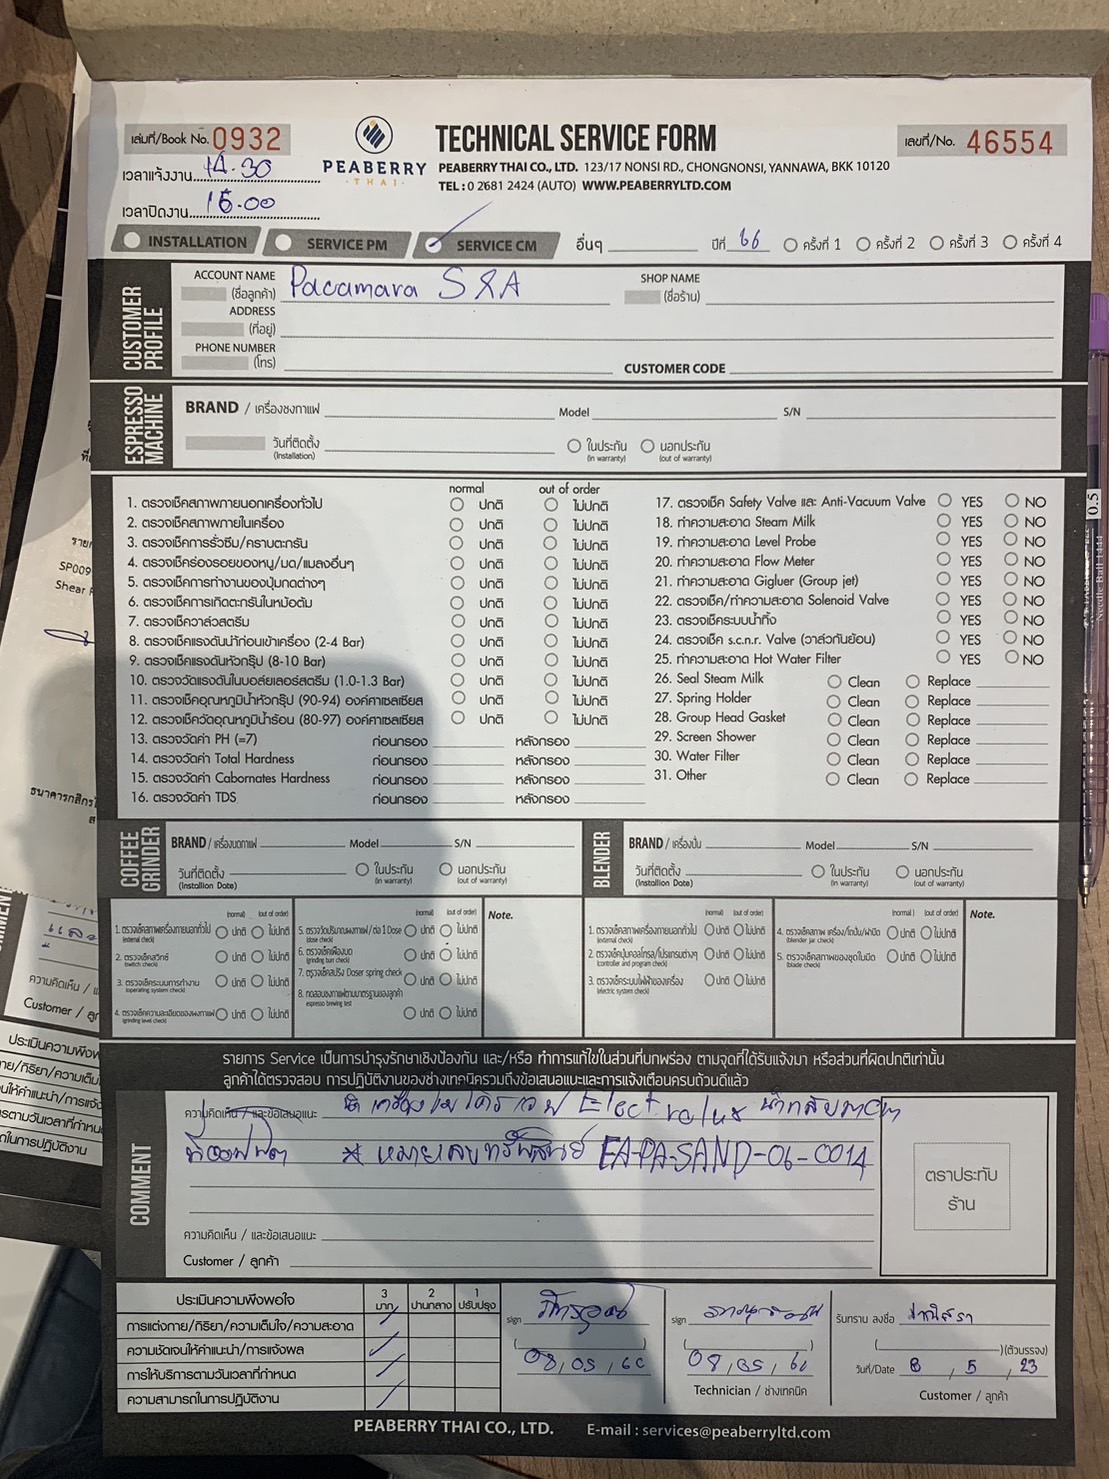 เล่มที่/Book No. 0932
PEABERRY
THAI
TECHNICAL SERVICE FORM
PEABERRY THAI CO., LTD. 123/17 NONSI RD., CHONGNONSI, YANNAWA, BKK 10120
TEL : 0 2681 2424 (AUTO) WWW.PEABERRYLTD.COM
เลขที่/No. 46554
เวลาแจ้งงาน 14.30
เวลาปิดงาน 15.00
INSTALLATION SERVICE PM SERVICE CM อื่นๆ ปีที่ 66 ครั้งที่ 1 ครั้งที่ 2 ครั้งที่ 3 ครั้งที่ 4
CUSTOMER PROFILE
ACCOUNT NAME (ชื่อลูกค้า) Pacamara SXA SHOP NAME (ชื่อร้าน)
ADDRESS (ที่อยู่)
PHONE NUMBER (โทร) CUSTOMER CODE
ESPRESSO MACHINE
BRAND / เครื่องชงกาแฟ Model S/N
วันที่ติดตั้ง (Installation) ในประกัน (in warranty) นอกประกัน (out of warranty)
normal out of order
1. ตรวจเช็คสภาพภายนอกเครื่องทั่วไป ปกติ ไม่ปกติ
2. ตรวจเช็คสภาพภายในเครื่อง ปกติ ไม่ปกติ
3. ตรวจเช็คการรั่วซึม/คราบตะกรัน ปกติ ไม่ปกติ
4. ตรวจเช็คร่องรอยของหนู/มด/แมลงอื่นๆ ปกติ ไม่ปกติ
5. ตรวจเช็คการทำงานของปุ่มกดต่างๆ ปกติ ไม่ปกติ
6. ตรวจเช็คการเกิดตะกรันในหม้อต้ม ปกติ ไม่ปกติ
7. ตรวจเช็ควาล์วสตรีม ปกติ ไม่ปกติ
8. ตรวจเช็คแรงดันน้ำก่อนเข้าเครื่อง (2-4 Bar) ปกติ ไม่ปกติ
9. ตรวจเช็คแรงดันหัวกรุ๊ป (8-10 Bar) ปกติ ไม่ปกติ
10. ตรวจวัดแรงดันในบอล์ยเลอร์สตรีม (1.0-1.3 Bar) ปกติ ไม่ปกติ
11. ตรวจเช็คอุณหภูมิน้ำหัวกรุ๊ป (90-94) องศาเซลเซียส ปกติ ไม่ปกติ
12. ตรวจเช็ควัดอุณหภูมิน้ำร้อน (80-97) องศาเซลเซียส ปกติ ไม่ปกติ
13. ตรวจวัดค่า PH (=7) ก่อนกรอง หลังกรอง
14. ตรวจวัดค่า Total Hardness ก่อนกรอง หลังกรอง
15. ตรวจวัดค่า Cabornates Hardness ก่อนกรอง หลังกรอง
16. ตรวจวัดค่า TDS ก่อนกรอง หลังกรอง
17. ตรวจเช็ค Safety Valve และ Anti-Vacuum Valve YES NO
18. ทำความสะอาด Steam Milk YES NO
19. ทำความสะอาด Level Probe YES NO
20. ทำความสะอาด Flow Meter YES NO
21. ทำความสะอาด Gigluer (Group jet) YES NO
22. ตรวจเช็ค/ทำความสะอาด Solenoid Valve YES NO
23. ตรวจเช็คระบบน้ำทิ้ง YES NO
24. ตรวจเช็ค s.c.n.r. Valve (วาล์วกันย้อน) YES NO
25. ทำความสะอาด Hot Water Filter YES NO
26. Seal Steam Milk Clean Replace
27. Spring Holder Clean Replace
28. Group Head Gasket Clean Replace
29. Screen Shower Clean Replace
30. Water Filter Clean Replace
31. Other Clean Replace
COFFEE GRINDER
BRAND / เครื่องบดกาแฟ Model S/N
วันที่ติดตั้ง (Installion Date) ในประกัน (in warranty) นอกประกัน (out of warranty)
BLENDER
BRAND / เครื่องปั่น Model S/N
วันที่ติดตั้ง (Installion Date) ในประกัน (in warranty) นอกประกัน (out of warranty)
(normal) (out of order)
1. ตรวจเช็คสภาพเครื่องภายนอกทั่วไป (external check) ปกติ ไม่ปกติ
2. ตรวจเช็คสวิทซ์ (switch check) ปกติ ไม่ปกติ
3. ตรวจเช็คระบบการทำงาน (operating system check) ปกติ ไม่ปกติ
4. ตรวจเช็คความละเอียดของผงกาแฟ (grinding level check) ปกติ ไม่ปกติ
(normal) (out of order)
5. ตรวจวัดปริมาณผงกาแฟ / ต่อ 1 Dose (dose check) ปกติ ไม่ปกติ
6. ตรวจเช็คเฟืองบด (grinding burr check) ปกติ ไม่ปกติ
7. ตรวจเช็คสปริง Doser spring check ปกติ ไม่ปกติ
8. ทดสอบชงกาแฟตามมาตรฐานของลูกค้า espresso brewing test ปกติ ไม่ปกติ
Note.
(normal) (out of order)
1. ตรวจเช็คสภาพเครื่องภายนอกทั่วไป (external check) ปกติ ไม่ปกติ
2. ตรวจเช็คปุ่มคอลโทรล/โปรแกรมต่างๆ (controller and program check) ปกติ ไม่ปกติ
3. ตรวจเช็คระบบไฟฟ้าของเครื่อง (electric system check) ปกติ ไม่ปกติ
(normal) (out of order)
4. ตรวจเช็คสภาพ เครื่อง/โถปั่น/ฝาปิด (blender jar check) ปกติ ไม่ปกติ
5. ตรวจเช็คสภาพของชุดใบมีด (blade check) ปกติ ไม่ปกติ
Note.
รายการ Service เป็นการบำรุงรักษาเชิงป้องกัน และ/หรือ ทำการแก้ไขในส่วนที่บกพร่อง ตามจุดที่ได้รับแจ้งมา หรือส่วนที่ผิดปกติเท่านั้น
ลูกค้าได้ตรวจสอบ การปฏิบัติงานของช่างเทคนิครวมถึงข้อเสนอแนะและการแจ้งเตือนครบถ้วนดีแล้ว
COMMENT
ความคิดเห็น / และข้อเสนอแนะ เครื่องไมโครเวฟ Electrolux
* หมายเลขทรัพย์สิน FA-PA-SAND-06-0014
ตราประทับ
ร้าน
ความคิดเห็น / และข้อเสนอแนะ
Customer / ลูกค้า
ประเมินความพึงพอใจ 3 มาก 2 ปานกลาง 1 ปรับปรุง
การแต่งกาย/กิริยา/ความเต็มใจ/ความสะอาด
ความชัดเจนให้คำแนะนำ/การแจ้งผล
การให้บริการตามวันเวลาที่กำหนด
ความสามารถในการปฏิบัติงาน
sign
08, 05, 66
sign
08, 05, 66
Technician / ช่างเทคนิค
รับทราบ ลงชื่อ
(ตัวบรรจง)
วันที่/Date 8, 5, 23
Customer / ลูกค้า
PEABERRY THAI CO., LTD. E-mail : services@peaberryltd.com
SP009
Shear
ความคิดเห็น /
Customer / ลูก
0.5
Needle Ball 1444